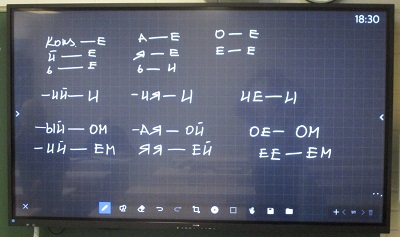 18:30
Конз — Е А — Е О — Е
Й — Е Я — Е Е — Е
Ь — Е Ь — И
-ИЙ — И -ИЯ — И ИЕ — И
-ЫЙ — ОМ -АЯ — ОЙ ОЕ — ОМ
-ИЙ — ЕМ ЯЯ — ЕЙ ЕЕ — ЕМ